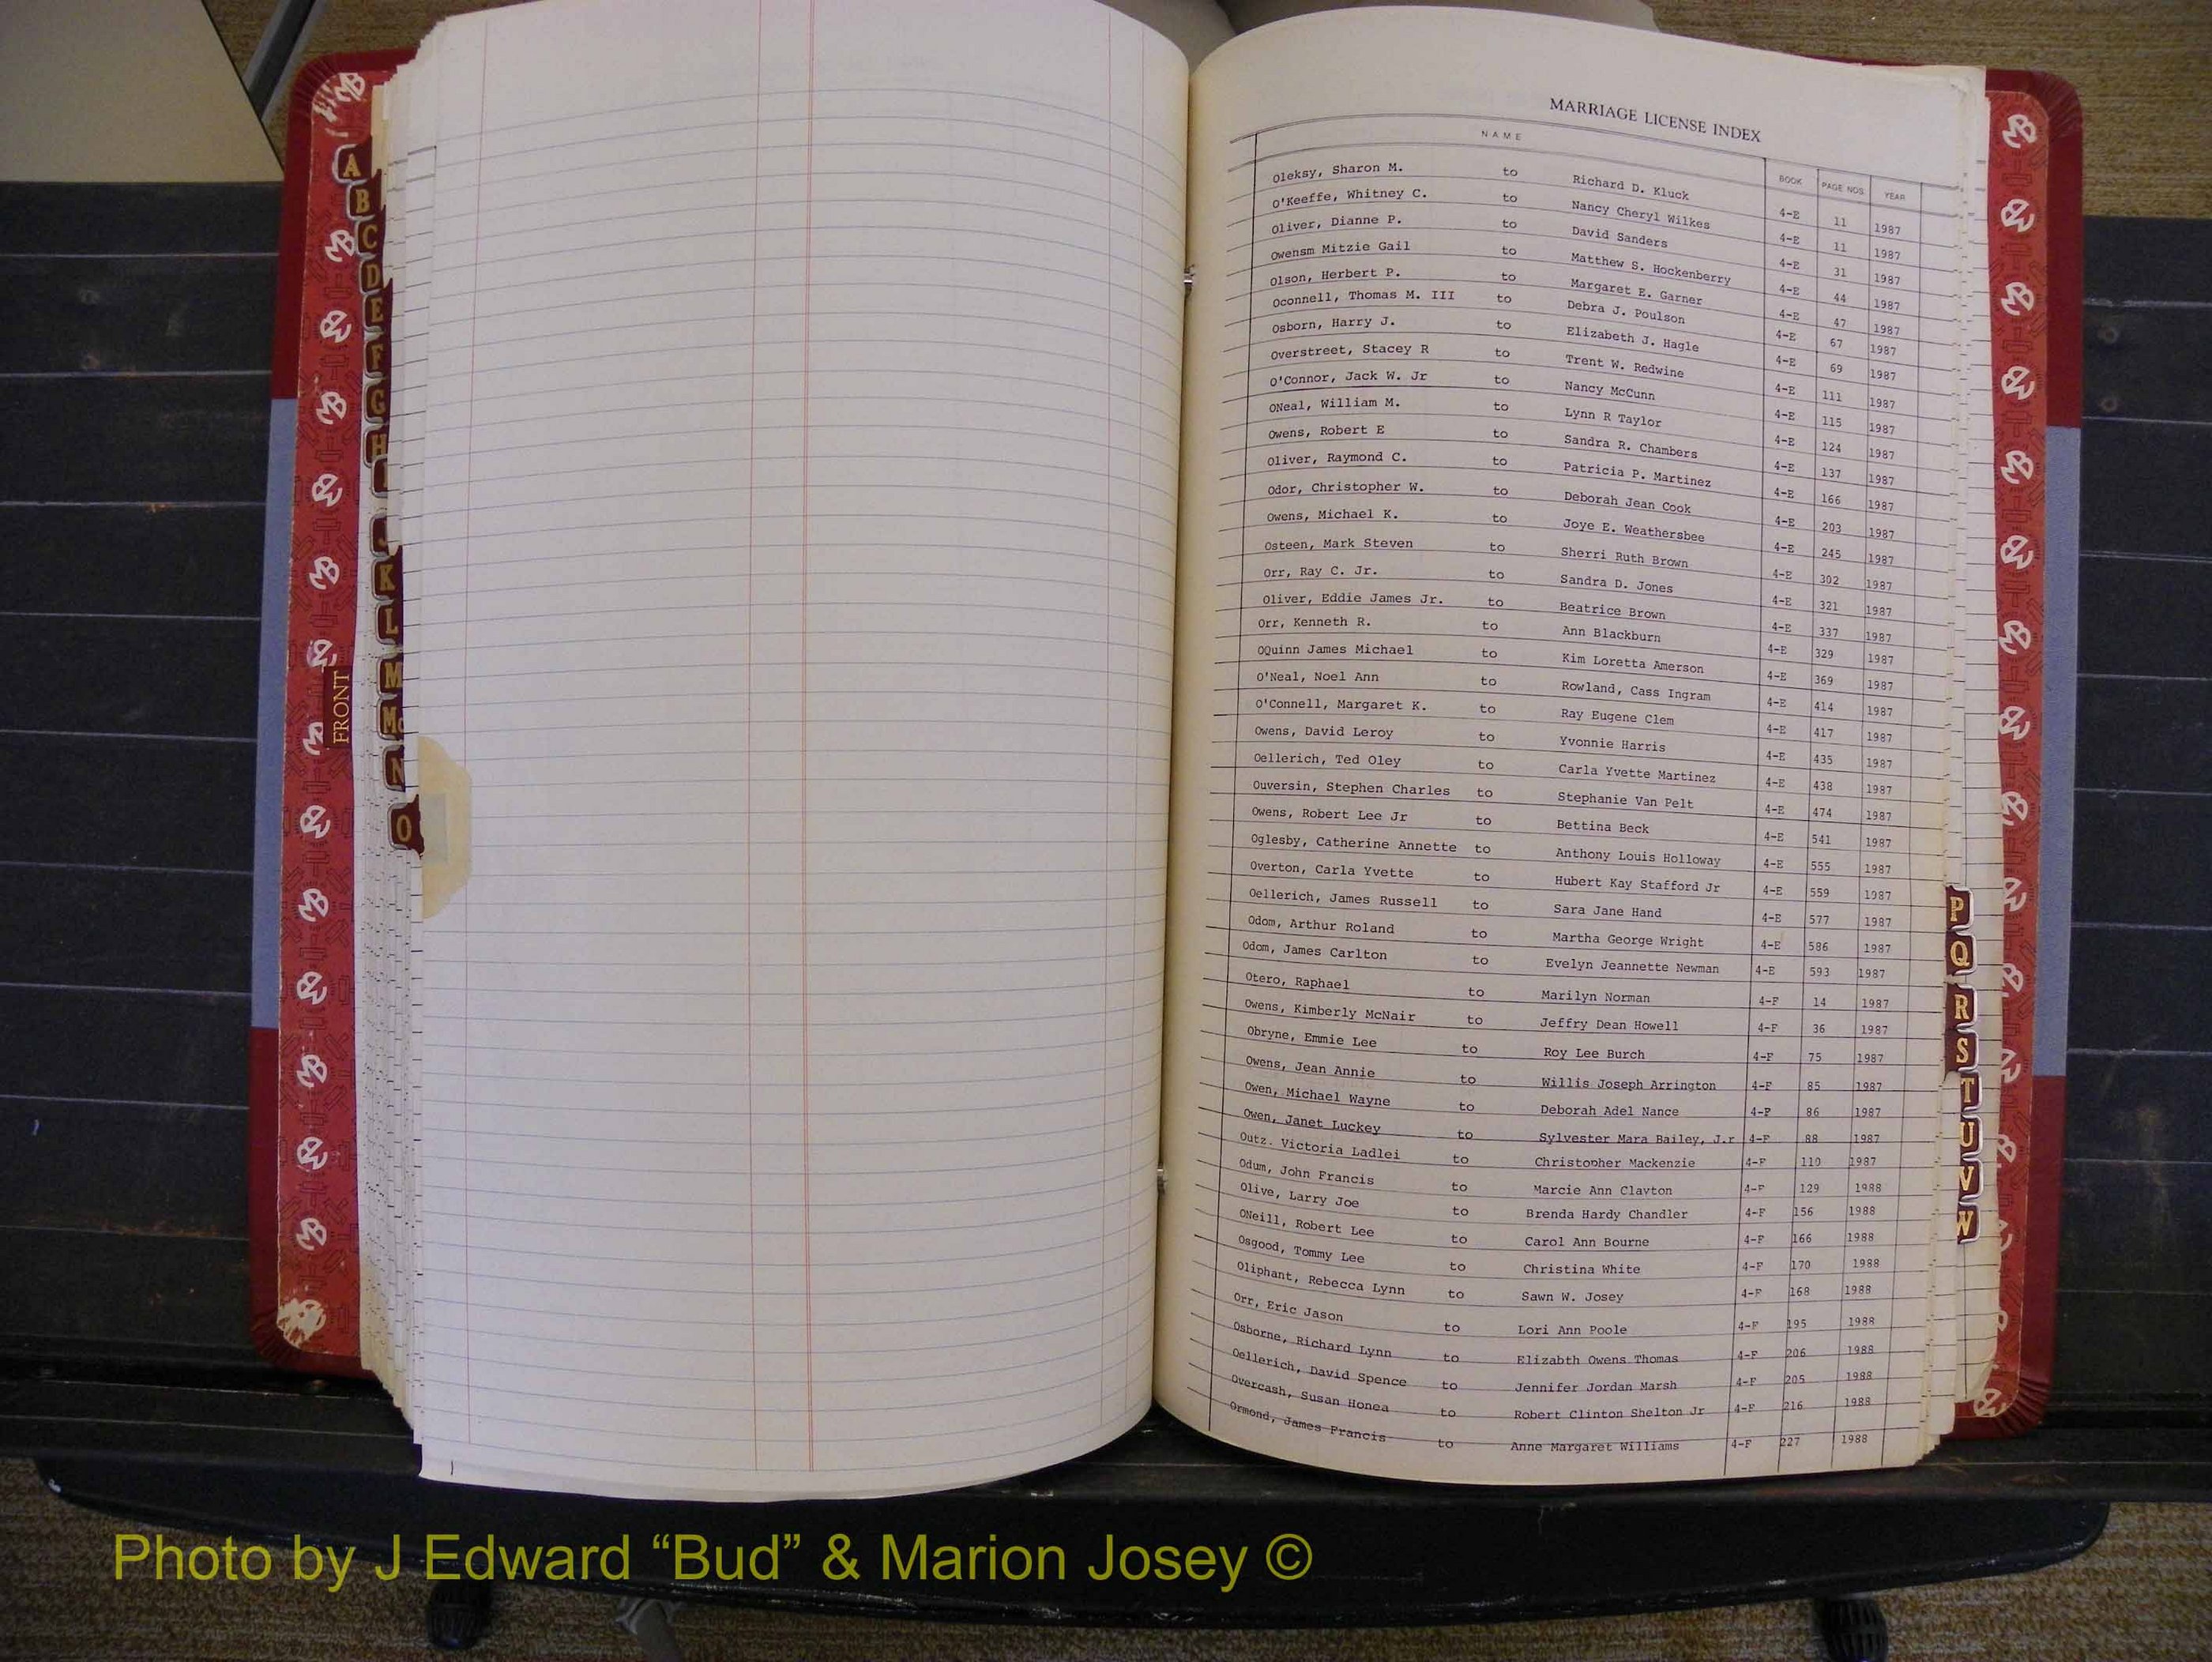 A
B
C
D
E
F
G
H
I
J
K
L
M
Mc
N
O
FRONT
MARRIAGE LICENSE INDEX
NAME BOOK PAGE NOS. YEAR
Oleksy, Sharon M. to Richard D. Kluck 4-E 11 1987
O'Keeffe, Whitney C. to Nancy Cheryl Wilkes 4-E 11 1987
Oliver, Dianne P. to David Sanders 4-E 31 1987
Owensm Mitzie Gail to Matthew S. Hockenberry 4-E 44 1987
Olson, Herbert P. to Margaret E. Garner 4-E 47 1987
Oconnell, Thomas M. III to Debra J. Poulson 4-E 67 1987
Osborn, Harry J. to Elizabeth J. Hagle 4-E 69 1987
Overstreet, Stacey R to Trent W. Redwine 4-E 111 1987
O'Connor, Jack W. Jr to Nancy McCunn 4-E 115 1987
ONeal, William M. to Lynn R Taylor 4-E 124 1987
Owens, Robert E to Sandra R. Chambers 4-E 137 1987
Oliver, Raymond C. to Patricia P. Martinez 4-E 166 1987
Odor, Christopher W. to Deborah Jean Cook 4-E 203 1987
Owens, Michael K. to Joye E. Weathersbee 4-E 245 1987
Osteen, Mark Steven to Sherri Ruth Brown 4-E 302 1987
Orr, Ray C. Jr. to Sandra D. Jones 4-E 321 1987
Oliver, Eddie James Jr. to Beatrice Brown 4-E 337 1987
Orr, Kenneth R. to Ann Blackburn 4-E 329 1987
OQuinn James Michael to Kim Loretta Amerson 4-E 369 1987
O'Neal, Noel Ann to Rowland, Cass Ingram 4-E 414 1987
O'Connell, Margaret K. to Ray Eugene Clem 4-E 417 1987
Owens, David Leroy to Yvonnie Harris 4-E 435 1987
Oellerich, Ted Oley to Carla Yvette Martinez 4-E 438 1987
Ouversin, Stephen Charles to Stephanie Van Pelt 4-E 474 1987
Owens, Robert Lee Jr to Bettina Beck 4-E 541 1987
Oglesby, Catherine Annette to Anthony Louis Holloway 4-E 555 1987
Overton, Carla Yvette to Hubert Kay Stafford Jr 4-E 559 1987
Oellerich, James Russell to Sara Jane Hand 4-E 577 1987
Odom, Arthur Roland to Martha George Wright 4-E 586 1987
Odom, James Carlton to Evelyn Jeannette Newman 4-E 593 1987
Otero, Raphael to Marilyn Norman 4-F 14 1987
Owens, Kimberly McNair to Jeffry Dean Howell 4-F 36 1987
Obryne, Emmie Lee to Roy Lee Burch 4-F 75 1987
Owens, Jean Annie to Willis Joseph Arrington 4-F 85 1987
Owen, Michael Wayne to Deborah Adel Nance 4-F 86 1987
Owen, Janet Luckey to Sylvester Mara Bailey, J.r 4-F 88 1987
Outz. Victoria Ladlei to Christopher Mackenzie 4-F 110 1987
Odum, John Francis to Marcie Ann Clayton 4-F 129 1988
Olive, Larry Joe to Brenda Hardy Chandler 4-F 156 1988
ONeill, Robert Lee to Carol Ann Bourne 4-F 166 1988
Osgood, Tommy Lee to Christina White 4-F 170 1988
Oliphant, Rebecca Lynn to Sawn W. Josey 4-F 168 1988
Orr, Eric Jason to Lori Ann Poole 4-F 195 1988
Osborne, Richard Lynn to Elizabth Owens Thomas 4-F 206 1988
Oellerich, David Spence to Jennifer Jordan Marsh 4-F 205 1988
Overcash, Susan Honea to Robert Clinton Shelton Jr 4-F 216 1988
Ormond, James Francis to Anne Margaret Williams 4-F 227 1988
P
Q
R
S
T
U
V
W
Photo by J Edward “Bud” & Marion Josey ©